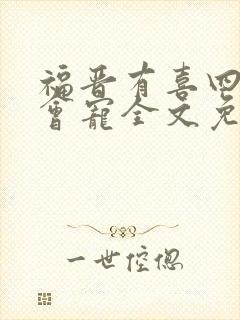 福晋有喜四
会宠全文免
一世倥偬